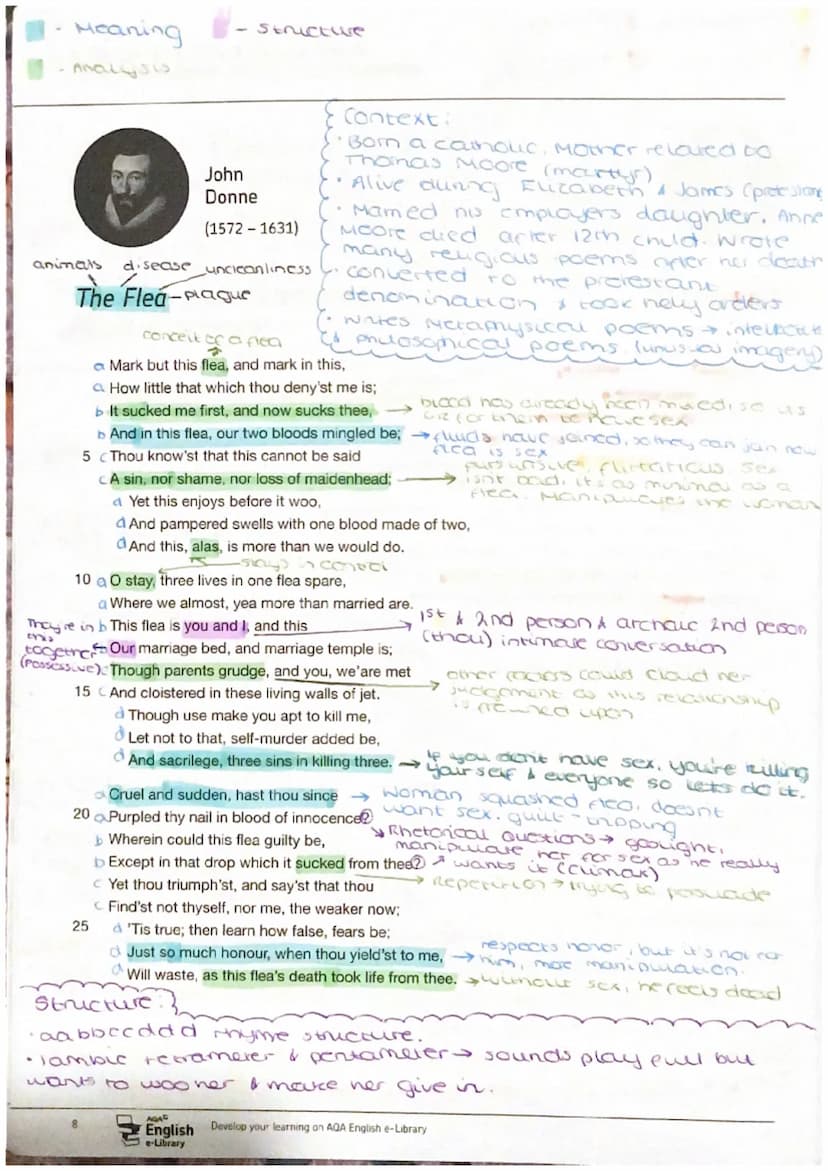 - Meaning - Structure
- Analysis
Context:
· Born a catholic, Mother related to
Thomas Moore (martyr)
· Alive during Elizabeth & James (protestant
· Married his employers daughter, Anne
Moore died after 12th child. Wrote
many religious poems after her death
· converted to the protestant
denomination & took holy orders
· Writes Metaphysical poems → intellectual
& philosophical poems (unusual imagery)
John
Donne
(1572 – 1631)
animals disease uncleanliness
The Flea – plague
conceit of a flea
a Mark but this flea, and mark in this,
a How little that which thou deny'st me is;
b It sucked me first, and now sucks thee, → blood has already been mixed, so its
ok for them to have sex
b And in this flea, our two bloods mingled be; → fluids have joined, so they can join now
flea is sex
5 c Thou know'st that this cannot be said
c A sin, nor shame, nor loss of maidenhead; → persuasive, flirtatious. Sex
isnt bad, it's as minimal as a
flea. Manipulates the woman
d Yet this enjoys before it woo,
d And pampered swells with one blood made of two,
d And this, alas, is more than we would do.
stays in control
10 a O stay, three lives in one flea spare,
a Where we almost, yea more than married are.
They're in
this
together
(possessive)
b This flea is you and I, and this → 1st & 2nd person & archaic 2nd person
(thou) intimate conversation
Our marriage bed, and marriage temple is;
c Though parents grudge, and you, we'are met → other factors could cloud her
judgement as this relationship
is frowned upon
15 c And cloistered in these living walls of jet.
d Though use make you apt to kill me,
d Let not to that, self-murder added be,
d And sacrilege, three sins in killing three. → If you dont have sex, you're killing
your self & everyone so lets do it.
a Cruel and sudden, hast thou since → Woman squashed flea, doesnt
want sex. guilt-tripping
20 a Purpled thy nail in blood of innocence?
→ Rhetorical Questions → gaslight,
manipulate her for sex as he really
wants it (climax)
b Wherein could this flea guilty be,
b Except in that drop which it sucked from thee?
→ Repetition → trying to persuade
c Yet thou triumph'st, and say'st that thou
c Find'st not thyself, nor me, the weaker now;
25 d 'Tis true; then learn how false, fears be;
d Just so much honour, when thou yield'st to me, → respects honor, but it's not for
him, more manipulation.
d Will waste, as this flea's death took life from thee. → without sex, he feels dead
Structure:
· aabbccddd rhyme structure.
· Iambic tetrameter & pentameter → sounds play full but
wants to woo her & make her give in.
8 AQA English e-Library Develop your learning on AQA English e-Library